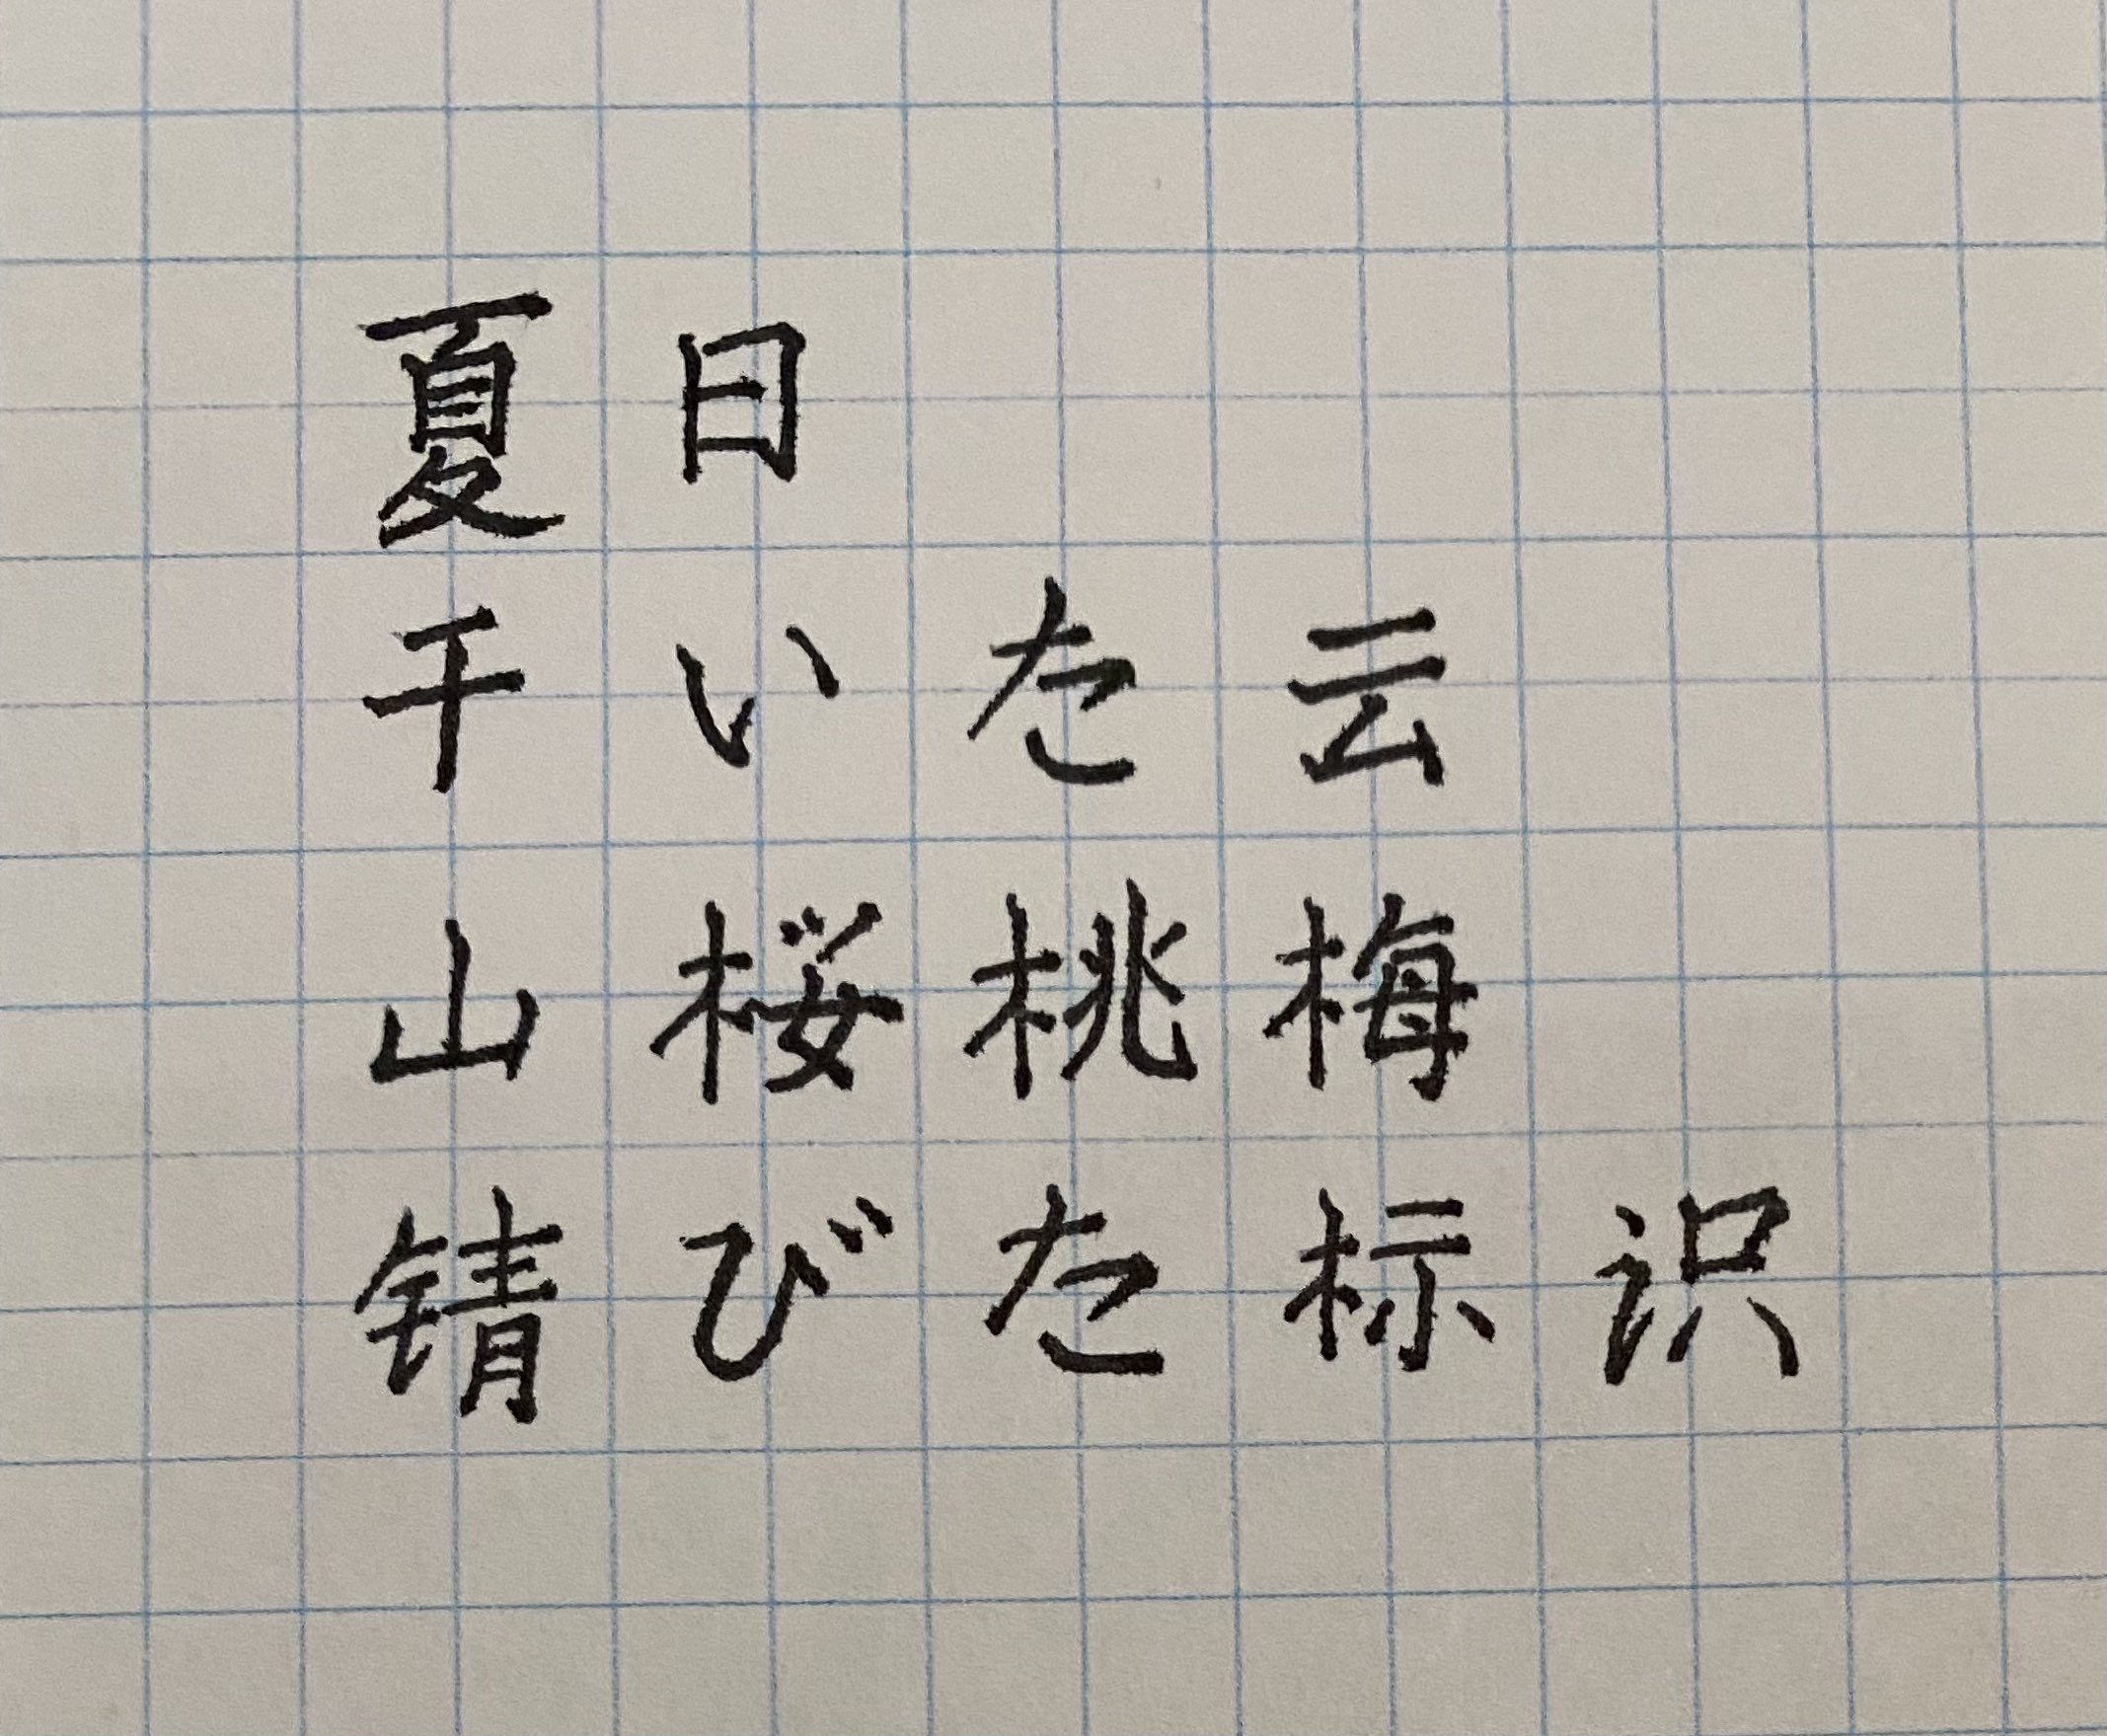 夏日
干いた云
山桜桃梅
锖びた标识